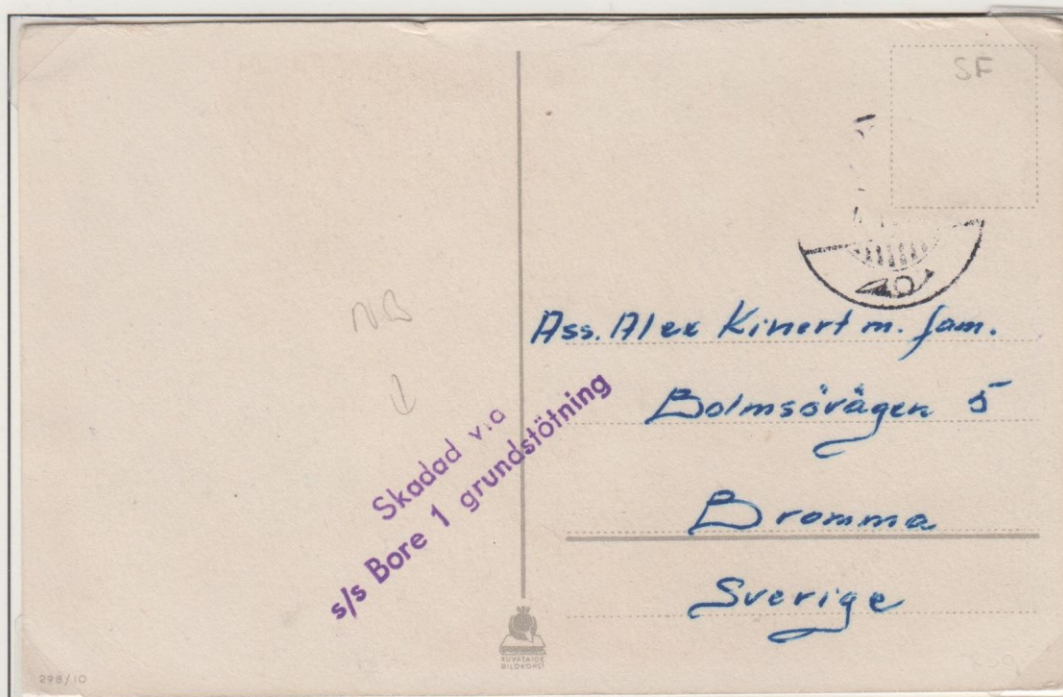 SF
NB
Skadad via
s/s Bore 1 grundstötning
Ass. Alex Kinert m. fam.
Bolmsövägen 5
Bromma
Sverige
KUVATAIDE
BILDKONST
298/10